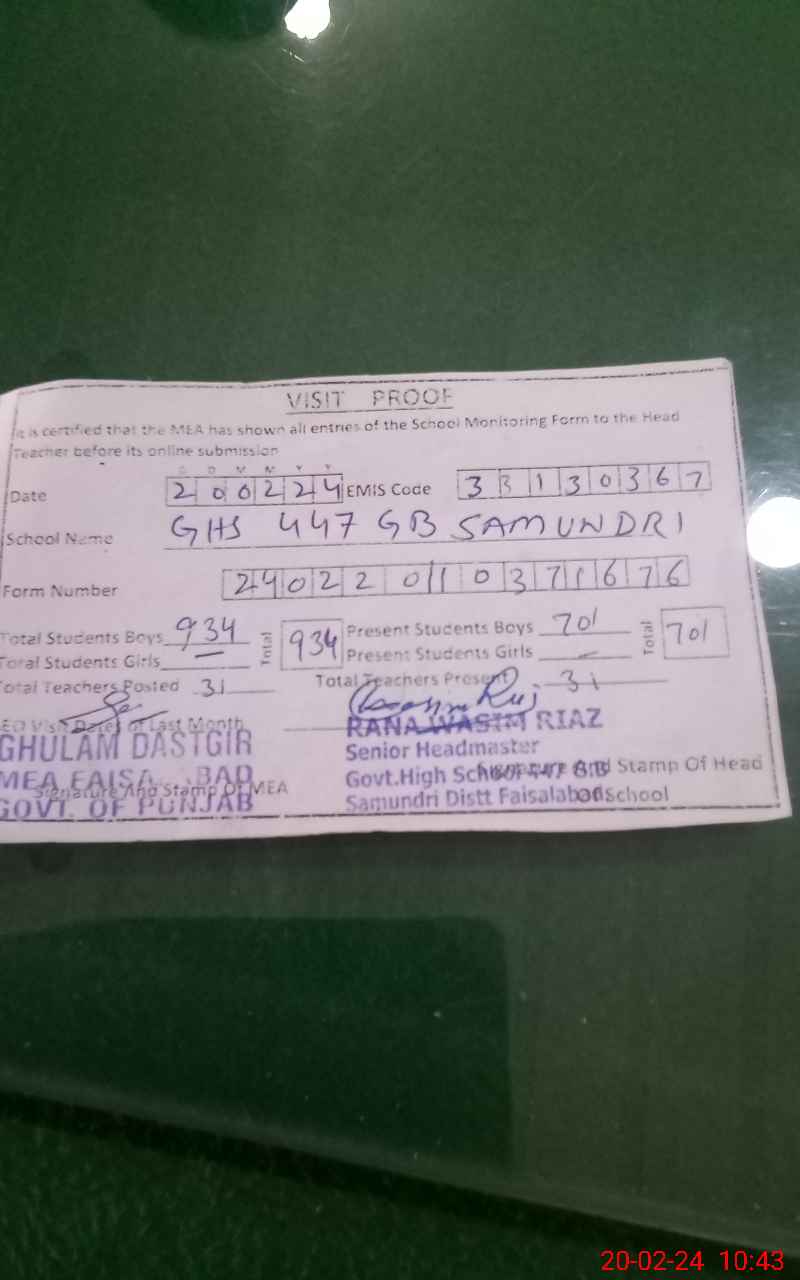 VISIT PROOF
It is certified that the MEA has shown all entries of the School Monitoring Form to the Head
Teacher before its online submission
D D M M Y Y
Date 200224 EMIS Code 33130367
School Name GHS 447 GB SAMUNDRI
Form Number 2402201103716 76
Total Students Boys 934 Total 934 Present Students Boys 701 Total 701
Total Students Girls — Present Students Girls —
Total Teachers Posted 31 Total Teachers Present 31
Visit Date of Last Month
GHULAM DASTGIR
MEA
GOVT. OF PUNJAB
Signature And Stamp Of MEA
RANA WASIM RIAZ
Senior Headmaster
Govt.High School 447 GB
Samundri Distt Faisalabad
Signature And Stamp Of Head
Of School
20-02-24 10:43